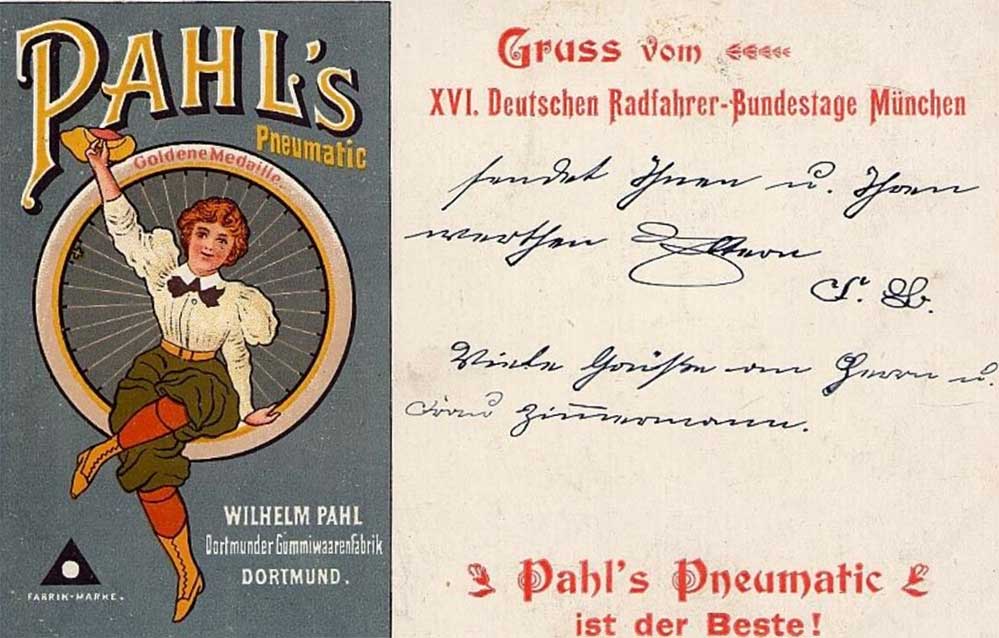 PAHL's
Pneumatic
Goldene Medaille
WILHELM PAHL
Dortmunder Gummiwaarenfabrik
DORTMUND.
FABRIK-MARKE.
Gruss vom
XVI. Deutschen Radfahrer-Bundestage München
sendet Ihnen u. Ihren
werthen Eltern
Viele Grüße an Herrn u.
Frau Zimmermann.
Pahl's Pneumatic
ist der Beste!